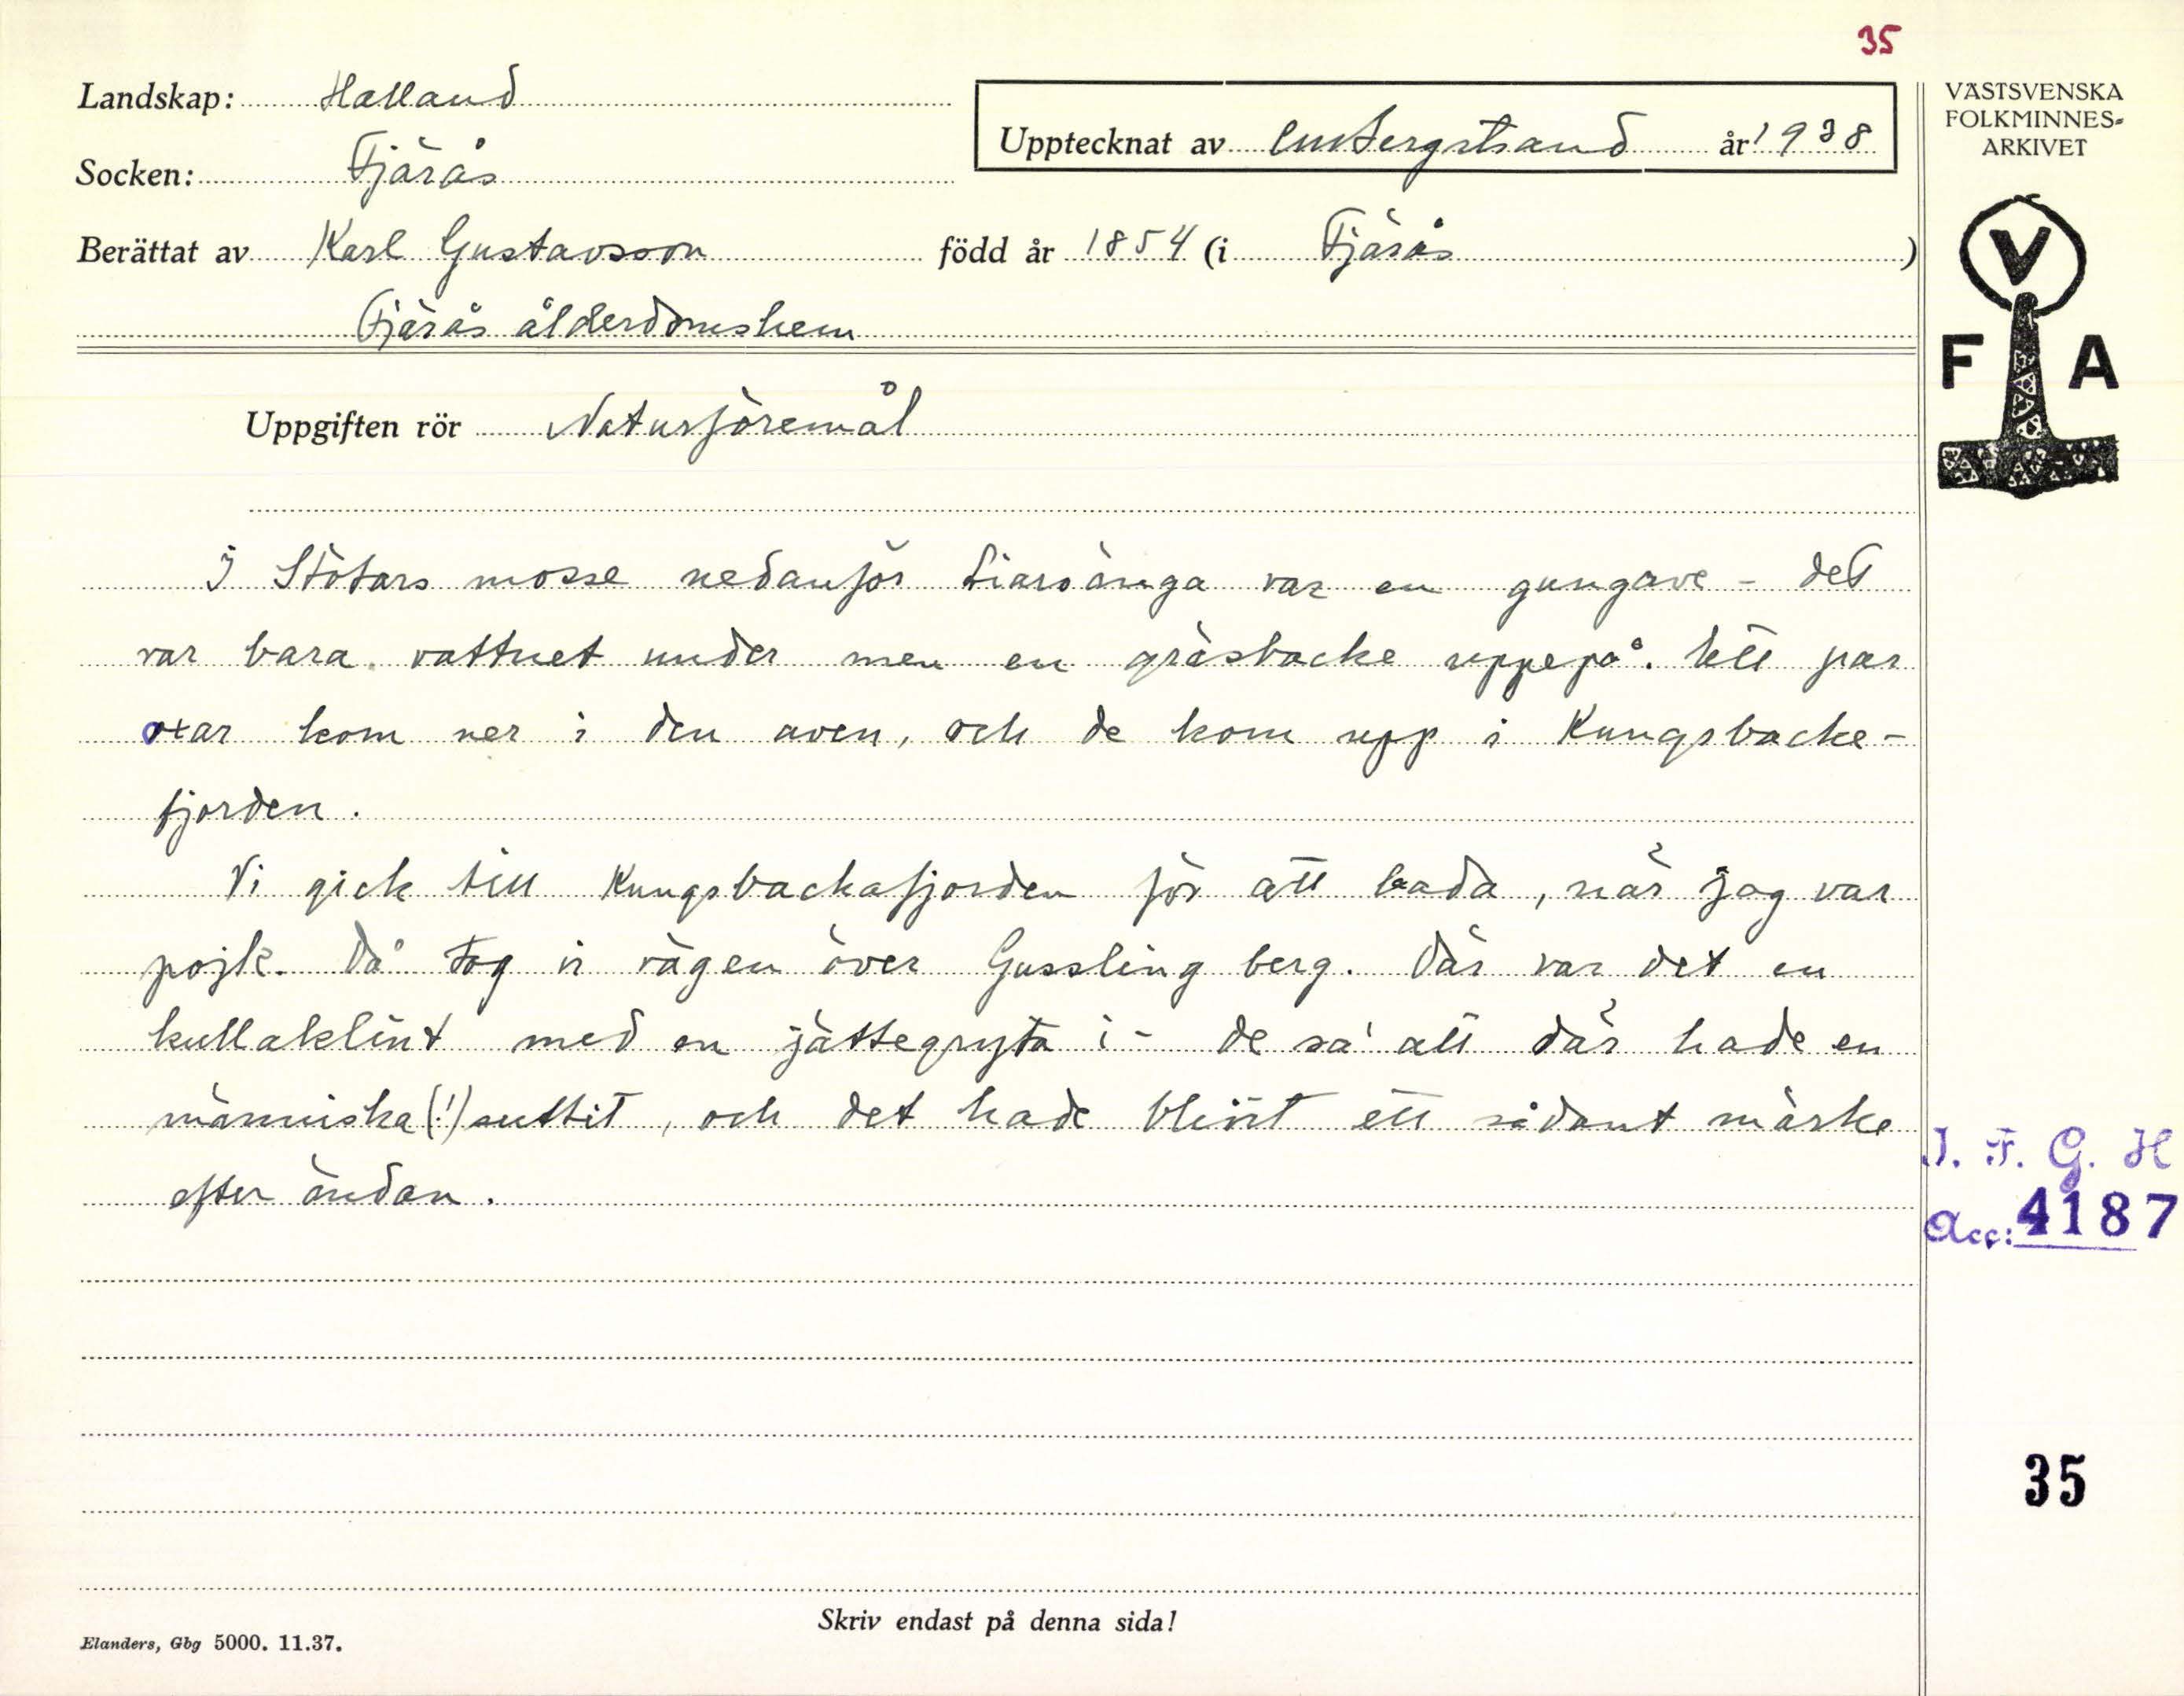 35
Landskap: Halland
Socken: Fjärås
Upptecknat av CMBergstrand år 1938
Berättat av Karl Gustavsson född år 1854 (i Fjärås)
Fjärås ålderdomshem
Uppgiften rör Naturföremål
I Stötars mosse nedanför var en gungave - det
var bara vattnet under men en gräsbacke uppepå. Ett par
oxar kom ner i den aven, och de kom upp i Kungsbacke-
fjorden.
Vi gick till Kungsbackafjorden för att bada, när jag var
pojk. Då tog vi vägen över Gussling berg. Där var det en
kullaklint med en jättegryta i - de sa' att där hade en
människa (!) suttit, och det hade blivit ett sådant märke
efter ändan.
VÄSTSVENSKA
FOLKMINNES-
ARKIVET
V
F A
I. F. G. H
Acc: 4187
35
Skriv endast på denna sida!
Elanders, Gbg 5000. 11.37.